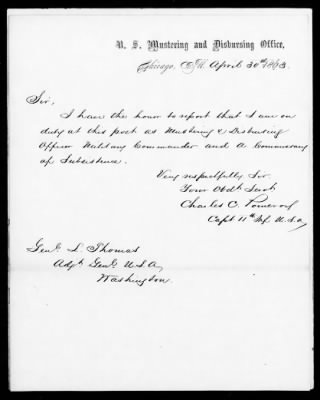 U. S. Mustering and Disbursing Office,
Chicago, Ill. April 30th 1863.
Sir,
I have the honor to report that I am on
duty at this post as Mustering & Disbursing
Officer Military Commander and A Commissary
of Subsistence.
Very respectfully Sir
Your Obdt Servt
Charles C. Pomeroy
Capt 11th Inf. U.S.A,
Genl. L. Thomas
Adgt. Genl. U.S.A,
Washington.